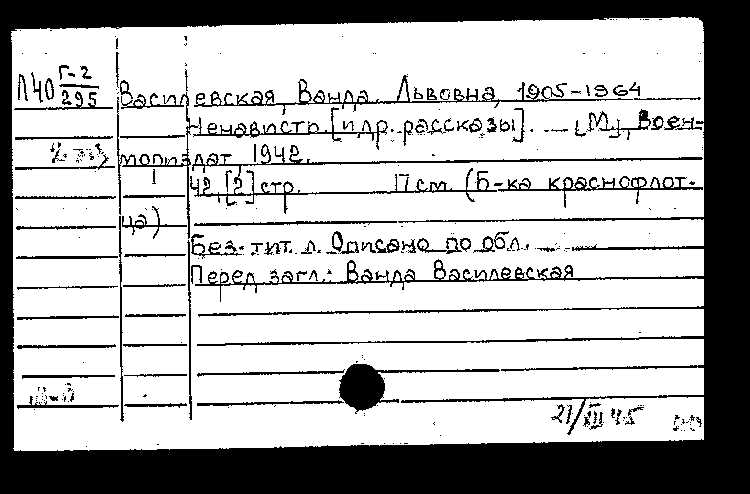 Л40 Г-2/295
Василевская, Ванда Львовна, 1905-1964
Ненависть [и др. рассказы]. — [М.], Воен-
мориздат, 1942.
42, [2] стр. 17 см. (Б-ка краснофлот-
ца)
Без тит. л. Описано по обл.
Перед загл.: Ванда Василевская
21/XII 45